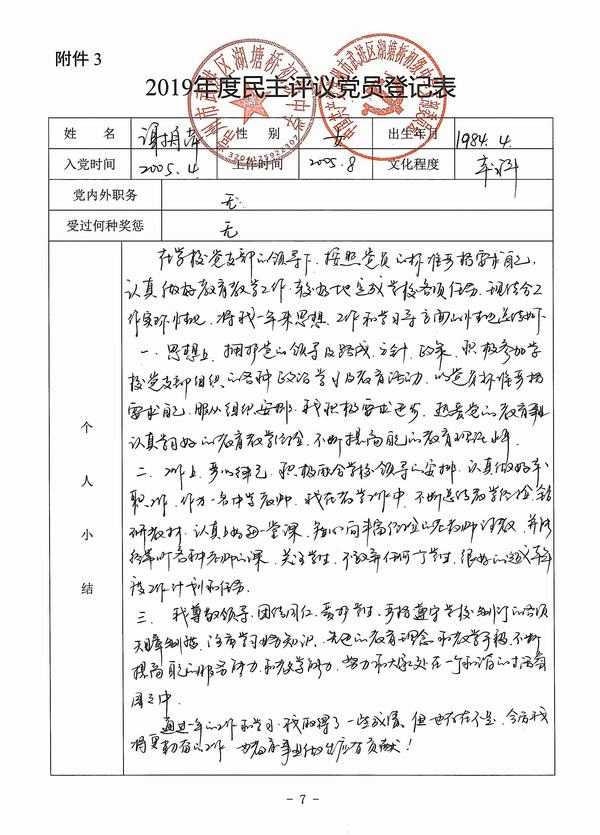 附件 3
2019年度民主评议党员登记表
姓 名 谢 性 别 女 出生年月 1984.4.
入党时间 2005.4 工作时间 2005.8 文化程度 本科
党内外职务 无
受过何种奖惩 无
个人小结
在学校党支部的领导下,按照党员的标准严格要求自己,
认真做好教育教学工作,较好地完成学校各项任务,现结合工
作实际情况,将我一年来思想、工作和学习等方面的情况总结如下
一、思想上,拥护党的领导及路线、方针、政策,积极参加学
校党支部组织的各种政治学习及教育活动,以党员标准严格
要求自己,服从组织安排,我积极要求进步,热爱党的教育事业
认真学习的教育教学,不断提高自己的教育理论水平
二、工作上,积极配合学校领导的安排,认真做好本
职工作,作为一名中学教师,我在教学工作中,不断总结教学经验,钻
研教材,认真上好每一堂课,虚心向丰富经验的老教师请教,并
经常听各科老师的课,关注学生,不放弃任何一个学生,很好的完成本年
度工作计划和任务。
三、我尊敬领导,团结同仁,爱护学生,严格遵守学校制订的各项
规章制度,注重学习业务知识,先进的教育理念和教学手段,不断
提高自己的服务能力和教学能力,努力和大家处在一个和谐的
之中
通过一年的工作和学习,我取得了一些成绩,但也存在不足,今后我
将更勤奋的工作,为教育事业做出应有贡献!
- 7 -